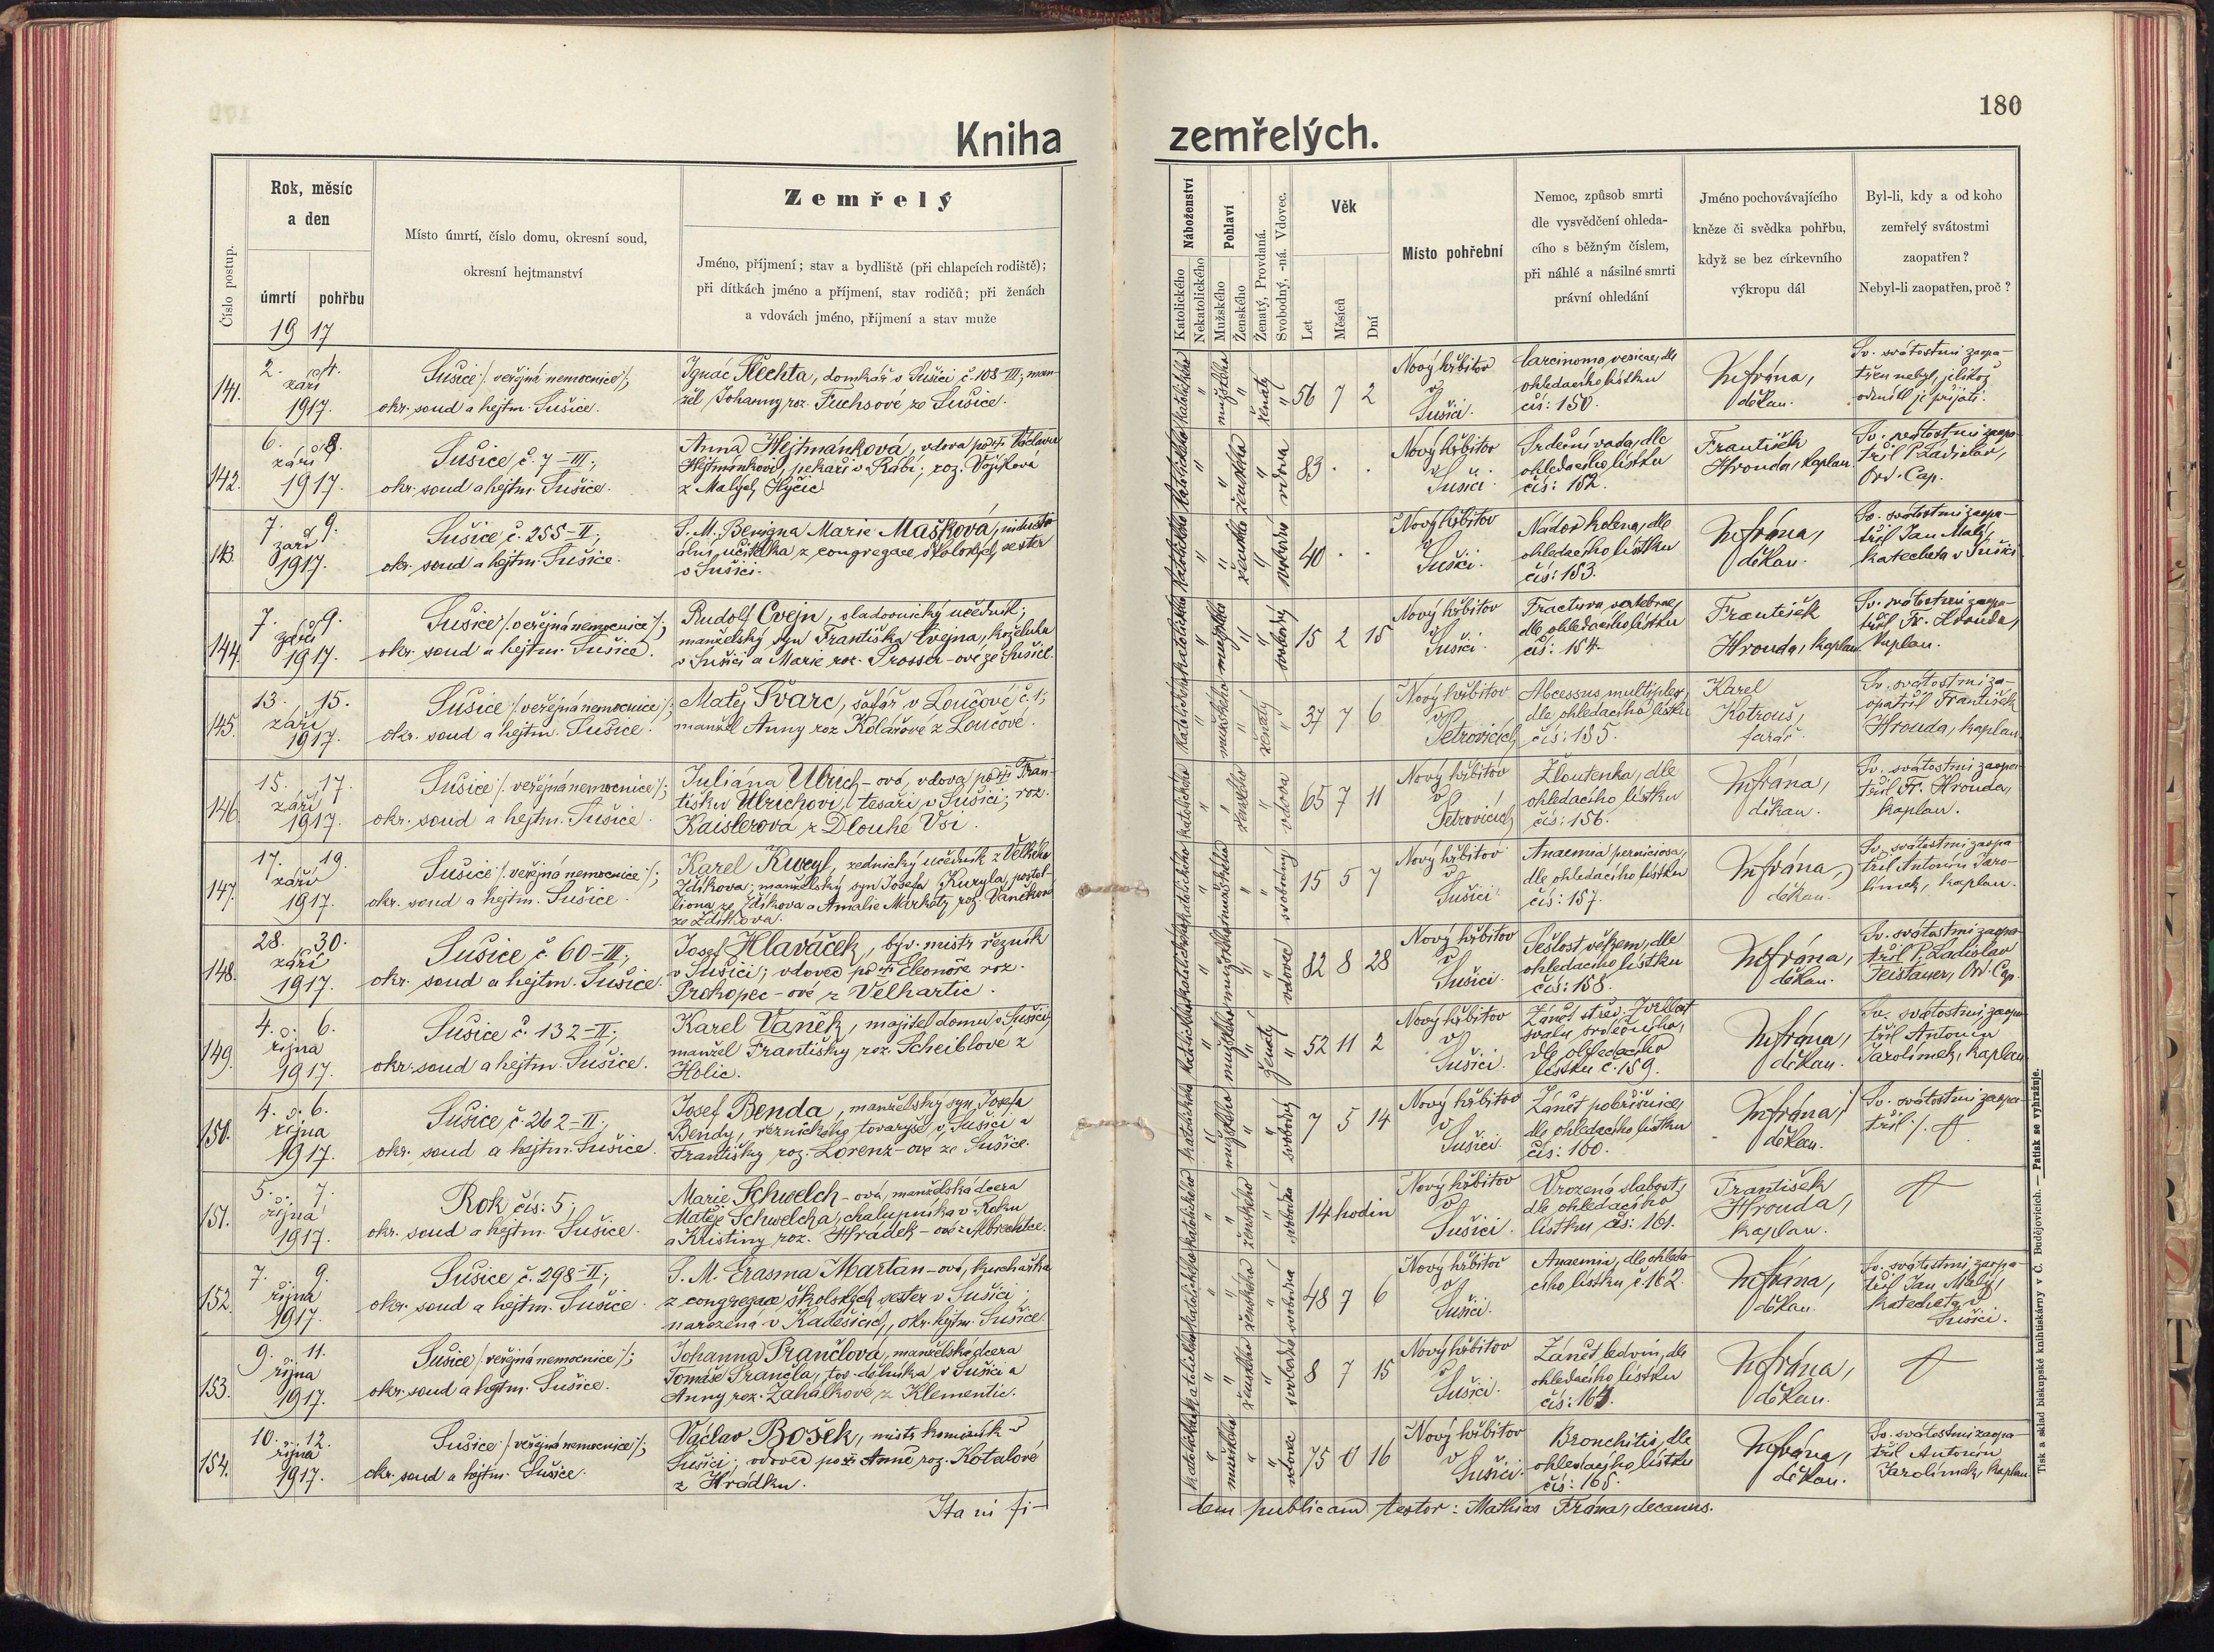 180
Kniha zemřelých.
Číslo postup.
Rok, měsíc
a den
úmrtí pohřbu
19 17
Místo úmrtí, číslo domu, okresní soud,
okresní hejtmanství
Zemřelý
Jméno, příjmení; stav a bydliště (při chlapcích rodiště);
při dítkách jméno a příjmení, stav rodičů; při ženách
a vdovách jméno, příjmení a stav muže
Náboženství
Katolického
Nekatolického
Pohlaví
Mužského
Ženského
Ženatý, Provdaná.
Svobodný, -ná. Vdovec.
Věk
Let
Měsíců
Dní
Místo pohřební
Nemoc, způsob smrti
dle vysvědčení ohleda-
cího s běžným číslem,
při náhlé a násilné smrti
právní ohledání
Jméno pochovávajícího
kněze či svědka pohřbu,
když se bez církevního
výkropu dál
Byl-li, kdy a od koho
zemřelý svátostmi
zaopatřen?
Nebyl-li zaopatřen, proč?
141.
2. 4.
září
1917.
Sušice /: veřejná nemocnice :/;
okr. soud a hejtm. Sušice.
Ignác Šlechta, domkář v Sušici č. 108-III; man-
žel Johanny roz. Fuchsové ze Sušice.
katolického " mužského " ženatý "
56 7 2
Nový hřbitov
v
Sušici.
Carcinoma vesicae, dle
ohledacího lístku
čís: 150.
M Frána,
děkan.
Sv. svátostmi zaopa-
třen nebyl, jelikož
odmítl je přijati.
142.
6. 8.
září
1917.
Sušice č. 7-III;
okr. soud a hejtm. Sušice.
Anna Hejtmánková, vdova po Václavu
Hejtmánkovi, pekaři v Rábí; roz. Vojíková
z Malých Hyčic
katolického " ženského " vdova
83 . .
Nový hřbitov
v
Sušici.
Srdeční vada, dle
ohledacího lístku
čís: 152.
František
Hrouda, kaplan.
Sv. svátostmi zaopa-
třil P. Ladislav,
Ord. Cap.
143.
7. 9.
září
1917.
Sušice č. 255-II;
okr. soud a hejtm. Sušice.
S. M. Benigna Marie Mašková, industri-
ální učitelka z congregace školských sester
v Sušici.
katolického " ženského " svobodná
40 . .
Nový hřbitov
v
Sušici.
Nádor kolena, dle
ohledacího lístku
čís: 153.
M Frána,
děkan.
Sv. svátostmi zaopa-
třil Jan Malý,
katecheta v Sušici.
144.
7. 9.
září
1917.
Sušice /: veřejná nemocnice :/;
okr. soud a hejtm. Sušice.
Rudolf Cvejn, sladovnický učedník;
manželský syn Františka Cvejna, koželuha
v Sušici a Marie roz. Prosser-ové ze Sušice.
katolického " mužského " svobodný
15 2 15
Nový hřbitov
v
Sušici.
Fractura vertebrae,
dle ohledacího lístku
čís: 154.
František
Hrouda, kaplan.
Sv. svátostmi zaopa-
třil Fr. Hrouda,
kaplan.
145.
13. 15.
září
1917.
Sušice /: veřejná nemocnice :/;
okr. soud a hejtm. Sušice.
Matěj Švarc, šafář v Loučové č. 1;
manžel Anny roz. Kolářové z Loučové.
katolického " mužského " ženatý "
37 7 6
Nový hřbitov
v
Petrovicích
Abcessus multiplex,
dle ohledacího lístku
čís: 155.
Karel
Kotrouš,
farář.
Sv. svátostmi za-
opatřil František
Hrouda, kaplan
146.
15. 17.
září
1917.
Sušice /: veřejná nemocnice :/;
okr. soud a hejtm. Sušice.
Juliána Ulrich-ová, vdova po Fran-
tišku Ulrichovi, tesaři v Sušici; roz.
Kaislerová z Dlouhé Vsi.
katolického " ženského " vdova
65 7 11
Nový hřbitov
v
Petrovicích
Žloutenka, dle
ohledacího lístku
čís: 156.
M Frána,
děkan.
Sv. svátostmi zaopa-
třil Fr. Hrouda,
kaplan.
147.
17. 19.
září
1917.
Sušice /: veřejná nemocnice :/;
okr. soud a hejtm. Sušice.
Karel, zednický učedník z Velkého
Zdíkova; manželský syn Josefa Kuryla, postil-
liona ze Zdíkova a Amalie Markoty roz. Vaněkové
ze Zdíkova.
katolického " mužského " svobodný
15 5 7
Nový hřbitov
v
Sušici.
Anaemia perniciosa,
dle ohledacího lístku
čís: 157.
M Frána,
děkan.
Sv. svátostmi zaopa-
třil Antonín Jaro-
límek, kaplan.
148.
28. 30.
září
1917.
Sušice č. 60-III;
okr. soud a hejtm. Sušice.
Josef Hlaváček, býv. mistr řezník
v Sušici; vdovec po Eleonoře roz.
Prokopec-ové z Velhartic.
katolického " mužského " vdovec
82 8 28
Nový hřbitov
v
Sušici.
Sešlost věkem, dle
ohledacího lístku
čís: 158.
M Frána,
děkan.
Sv. svátostmi zaopa-
třil P. Ladislav
Feistauer, Ord. Cap.
149.
4. 6.
října
1917.
Sušice č. 132-II;
okr. soud a hejtm. Sušice.
Karel Vaněk, majitel domu v Sušici,
manžel Františky roz. Scheiblové z
Holic.
katolického " mužského " ženatý "
52 11 2
Nový hřbitov
v
Sušici.
Zánět střev. Zvrhlost
svalu srdečního,
dle ohledacího
lístku č. 159.
M Frána,
děkan.
Sv. svátostmi zaopa-
třil Antonín
Jarolímek, kaplan
150.
4. 6.
října
1917.
Sušice č. 262-II;
okr. soud a hejtm. Sušice.
Josef Benda, manželský syn Josefa
Bendy, řeznického tovaryše v Sušici a
Františky roz. Lorenz-ové ze Sušice.
katolického " mužského " svobodný
7 5 14
Nový hřbitov
v
Sušici.
Zánět pobřišnice,
dle ohledacího lístku
čís: 160.
M Frána,
děkan.
Sv. svátostmi zaopa-
třil
151.
5. 7.
října
1917.
Rok čís: 5;
okr. soud a hejtm. Sušice.
Marie Schwelch-ová, manželská dcera
Matěje Schwelcha, chalupníka v Roku
a Kristiny roz. Hrádek-ové z Albrechtce.
katolického " ženského " svobodná
14 hodin
Nový hřbitov
v
Sušici.
Vrozená slabost,
dle ohledacího
lístku čís: 161.
František
Hrouda,
kaplan.
152.
7. 9.
října
1917.
Sušice č. 298-II;
okr. soud a hejtm. Sušice.
S. M. Erasma Martan-ová, kuchařka
z congregace školských sester v Sušici;
narozena v Kadešicích, okr. hejtm. Sušice.
katolického " ženského " svobodná
48 7 6
Nový hřbitov
v
Sušici.
Anaemia, dle ohleda-
cího lístku, č. 162.
M Frána,
děkan.
Sv. svátostmi zaopa-
třil Jan Malý,
katecheta v
Sušici.
153.
9. 11.
října
1917.
Sušice /: veřejná nemocnice :/;
okr. soud a hejtm. Sušice.
Johanna Prančlová, manželská dcera
Tomáše Prančla, tov. dělníka v Sušici a
Anny roz. Zahálkové z Klementic.
katolického " ženského " svobodná
8 7 15
Nový hřbitov
v
Sušici.
Zánět ledvin, dle
ohledacího lístku
čís: 164.
M Frána,
děkan.
154.
10. 12.
října
1917.
Sušice /: veřejná nemocnice :/;
okr. soud a hejtm. Sušice.
Václav Bošek, mistr kominík v
Sušici; vdovec po Anně roz. Kotalové
z Hrádku.
katolického " mužského " vdovec
75 0 16
Nový hřbitov
v
Sušici.
Bronchitis, dle
ohledacího lístku
čís: 165.
M Frána,
děkan.
Sv. svátostmi zaopa-
třil Antonín
Jarolímek, kaplan
Ita in fi-
dem publicam testor: Mathias Frána, decanus.
Tisk a sklad biskupské knihtiskárny v Č. Budějovicích. — Patisk se vyhražuje.